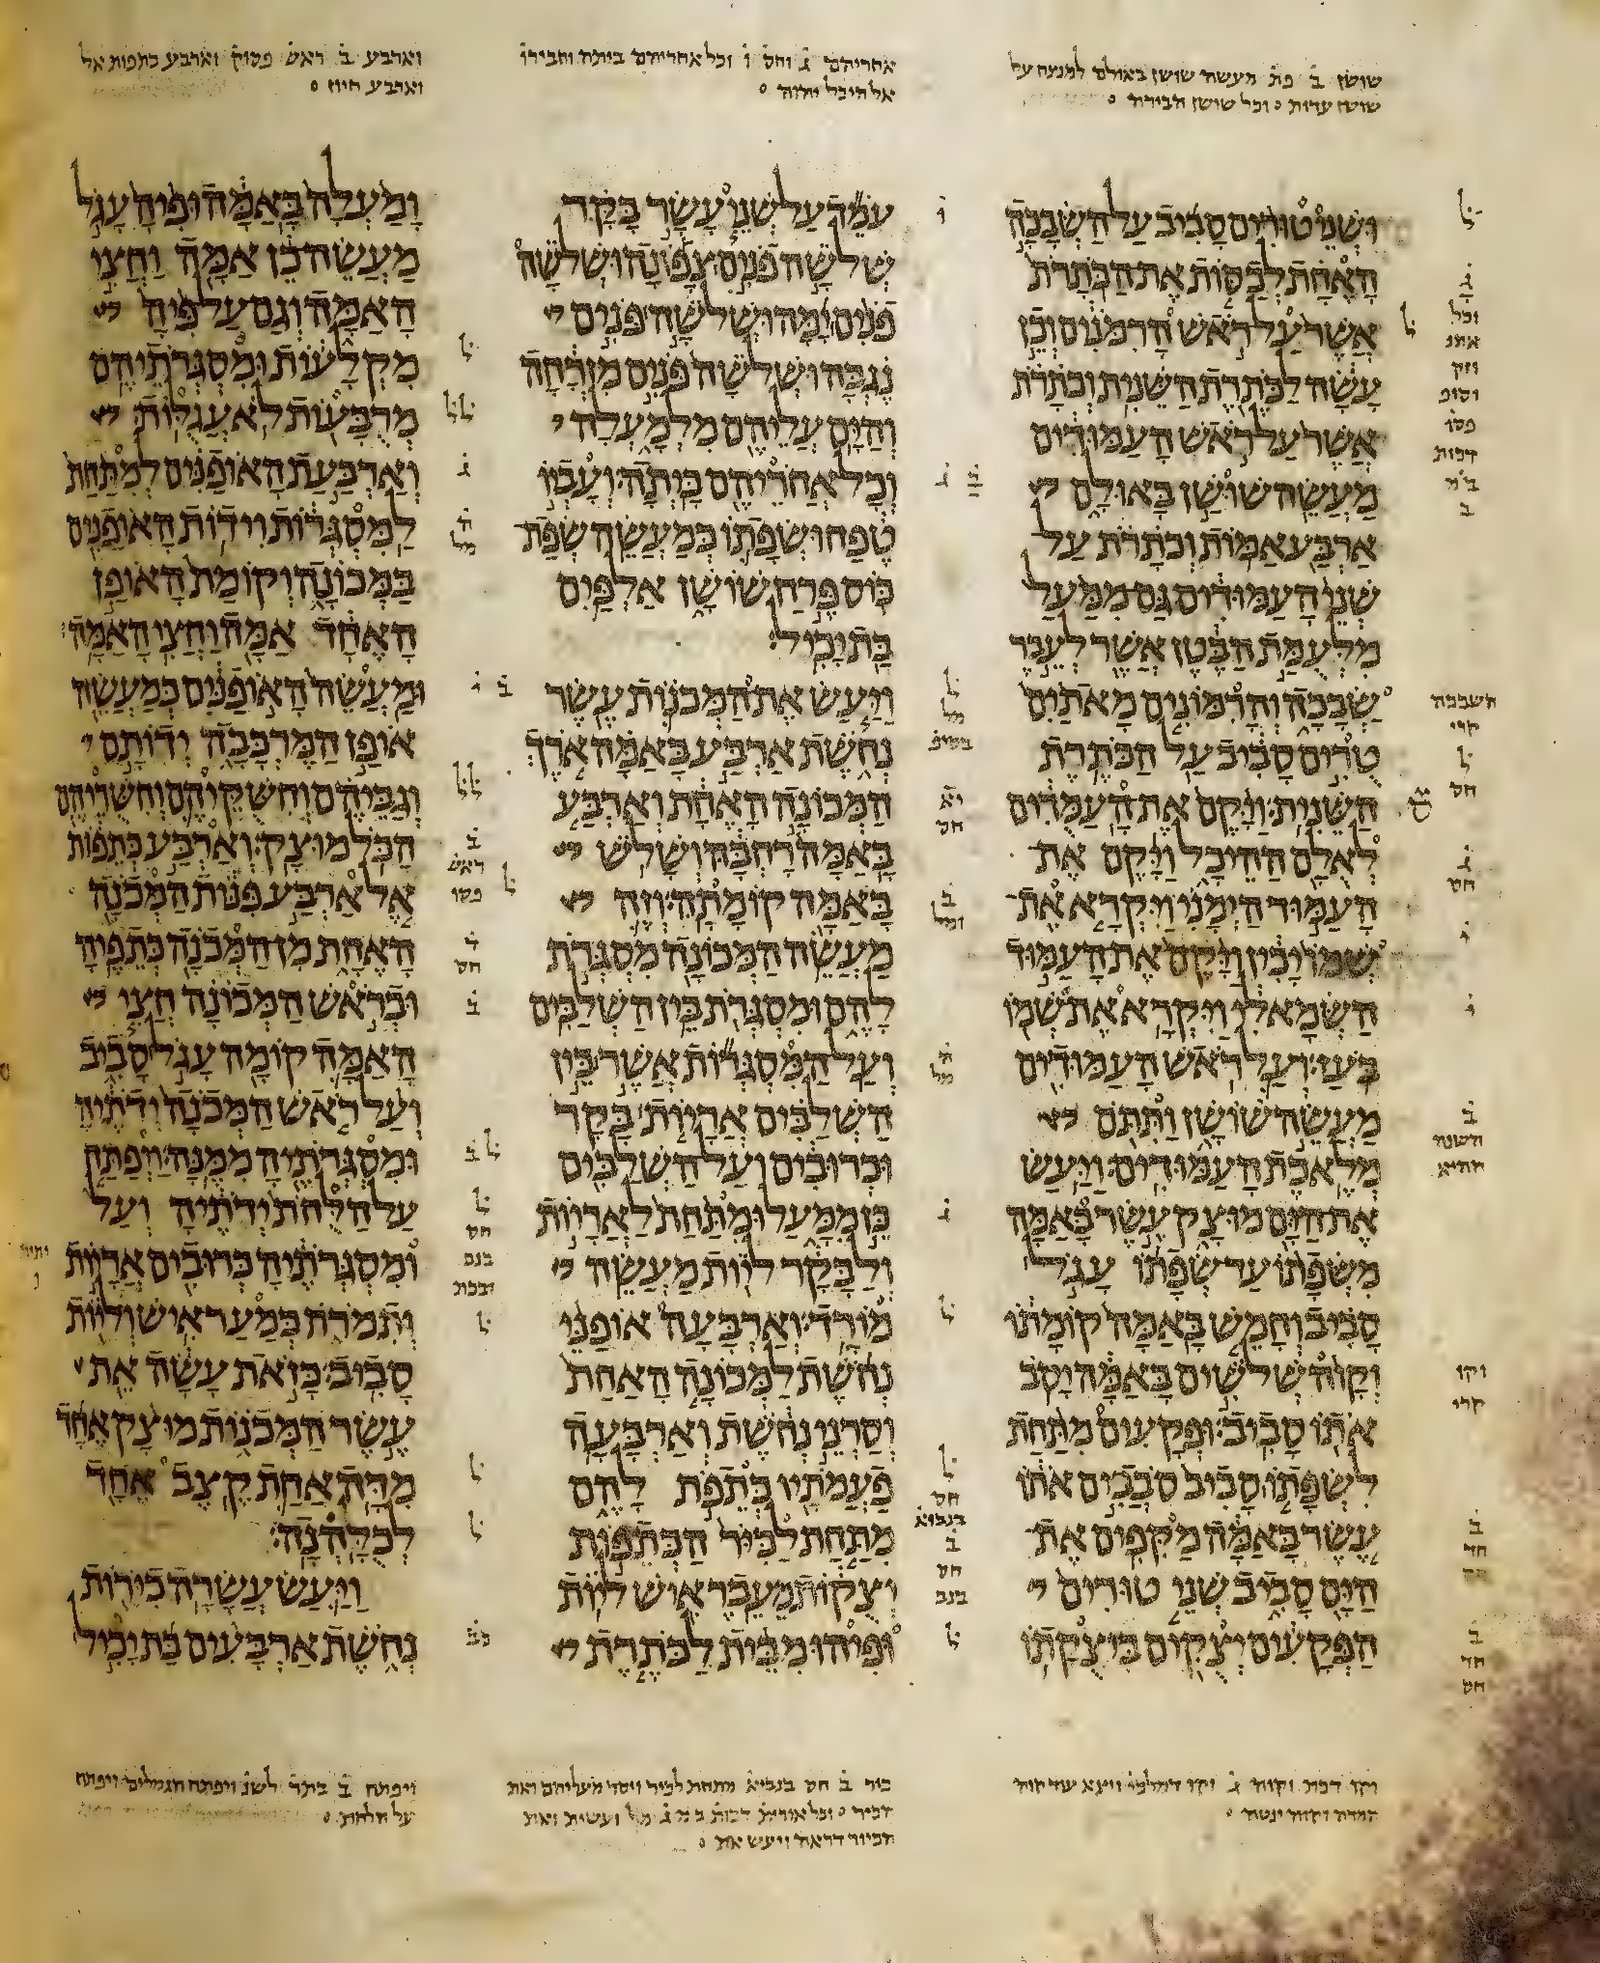 שושן ב̇ פת̇ מעשה שושן באולם למנצח על
שושן עדות וכל שושן הבירה
אחריהם ג̇ וחס̇ ו̇ וכל אחריהם ביתה וחבירו
אל היכל יהוה
וארבע ב̇ ראש̇ פסוק̇ וארבע כתפות אל
וארבע חיון
ושני טורים סביב על השבכה
האחת לכסות את הכתרת
אשר על ראש הרמנים וכן
עשה לכתרת השנית וכתרת
אשר על ראש העמודים
מעשה שושן באולם
ארבע אמות וכתרת על
שני העמודים גם ממעל
מלעמת הבטן אשר לעבר
שבכה והרמונים מאתים
טרים סביב על הכתרת
השנית ויקם את העמדים
לאלם ההיכל ויקם את
העמוד הימני ויקרא את
שמו יכין ויקם את העמוד
השמאלי ויקרא את שמו
בעז ועל ראש העמודים
מעשה שושן ותתם
מלאכת העמודים ויעש
את הים מוצק עשר באמה
משפתו עד שפתו עגל
סביב וחמש באמה קומתו
וקוה שלשים באמה יסב
אתו סביב ופקעים מתחת
לשפתו סביב סבבים אתו
עשר באמה מקפים את
הים סביב שני טורים
הפקעים יצקים ביצקתו
עמד על שני עשר בקר
שלשה פנים צפונה ושלשה
פנים ימה ושלשה פנים
נגבה ושלשה פנים מזרחה
והים עליהם מלמעלה
וכל אחריהם ביתה ועביו
טפח ושפתו כמעשה שפת
כוס פרח שושן אלפים
בת יכיל
ויעש את המכנות עשר
נחשת ארבע באמה ארך
המכונה האחת וארבע
באמה רחבה ושלש
באמה קומתה וזה
מעשה המכונה מסגרת
להם ומסגרת בין השלבים
ועל המסגרות אשר בין
השלבים אריות בקר
וכרובים ועל השלבים
כן ממעל ומתחת לאריות
ולבקר ליות מעשה
מורד וארבעה אופני
נחשת למכונה האחת
וסרני נחשת וארבעה
פעמתיו כתפת להם
מתחת לכיר הכתפות
יצקות מעבר איש ליות
ופיהו מבית לכתרת
ומעלה באמה ופיה עגל
מעשה כן אמה וחצי
האמה וגם על פיה
מקלעות ומסגרתיהם
מרבעות לא עגלות
וארבעת האופנים למתחת
למסגרות וידות האופנים
במכונה וקומת האופן
האחד אמה וחצי האמה
ומעשה האופנים כמעשה
אופן המרכבה ידותם
וגביהם וחשקיהם וחשריהם
הכל מוצק וארבע כתפות
אל ארבע פנות המכנה
האחת מן המכנה כתפיה
ובראש המכונה חצי
האמה קומה עגל סביב
ועל ראש המכנה ידתיה
ומסגרתיה ממנה ויפתח
על הלחת ידתיה ועל
ומסגרתיה כרובים אריות
ותמרת כמער איש וליות
סביב כזאת עשה את
עשר המכנות מוצק אחד
מדה אחת קצב אחד
לכלהנה
ויעש עשרה כירות
נחשת ארבעים בת יכיל
וקו דכת̇ וקוה ג̇ וקו דמלכי̇ ויצא עוד קוה
המדה וקוה ינטה
כיר ב̇ חס̇ בנביא̇ מתחת לכיר ויסר מעליהם ואת
הכיר וכל אורית̇ דכות̇ ב̇ מ̇ ג̇ מל̇ ועשית ואת
הכיור דראה ויעש את
ויפתח ב̇ בתר̇ לשנ̇ ויפתח הגמלים ויפתח
על הלחת